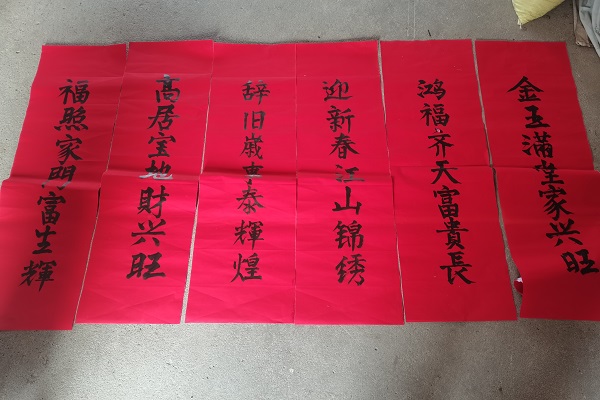 金玉滿堂家兴旺
鸿福齐天富貴長
迎新春江山锦绣
辞旧歲事泰輝煌
高居宝地財兴旺
福照家門富生輝